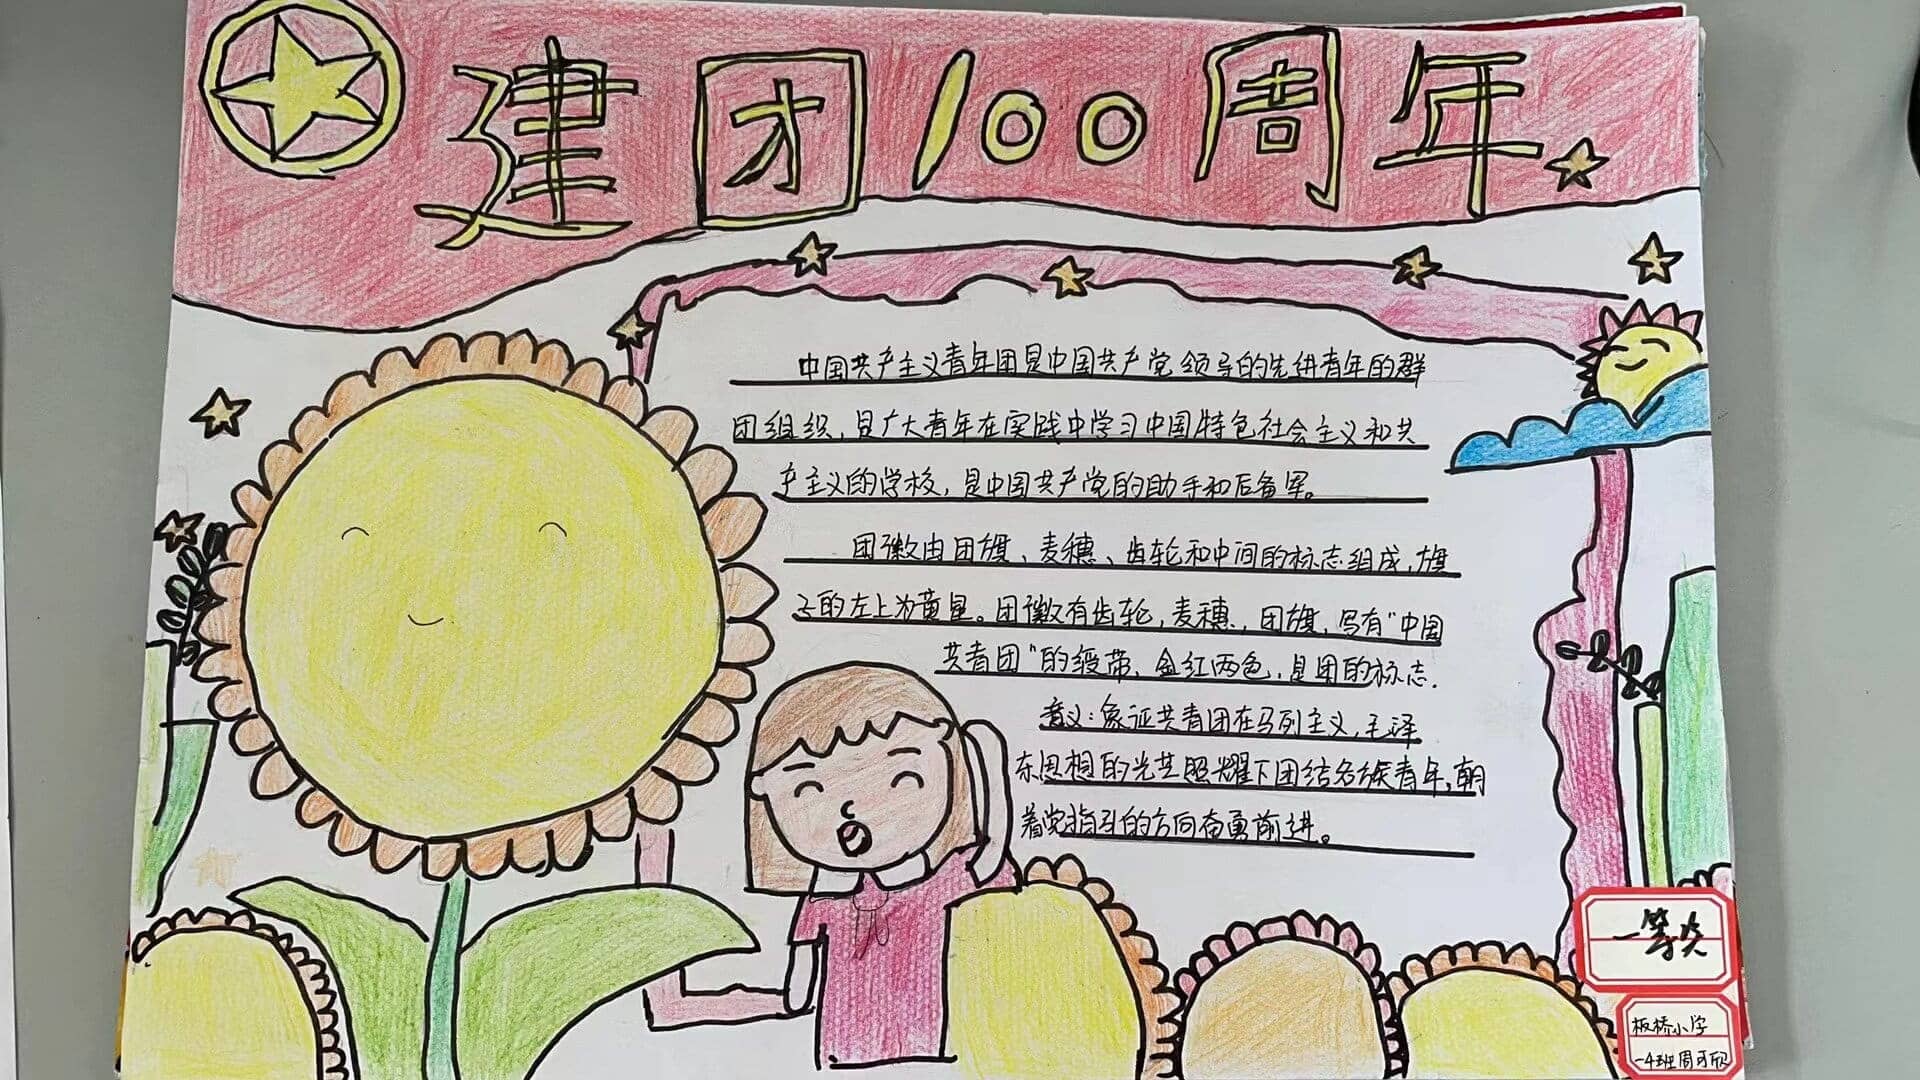 建团100周年
中国共产主义青年团是中国共产党领导的先进青年的群
团组织，是广大青年在实践中学习中国特色社会主义和共
产主义的学校，是中国共产党的助手和后备军。
团徽由团旗、麦穗、齿轮和中间的标志组成，旗
子的左上为黄星。团徽有齿轮，麦穗，团旗，写有“中国
共青团”的绶带，金红两色，是团的标志.
意义：象征共青团在马列主义，毛泽
东思想的光芒照耀下团结各族青年，朝
着党指引的方向奋勇前进。
一等奖
板桥小学
一4班周可欣